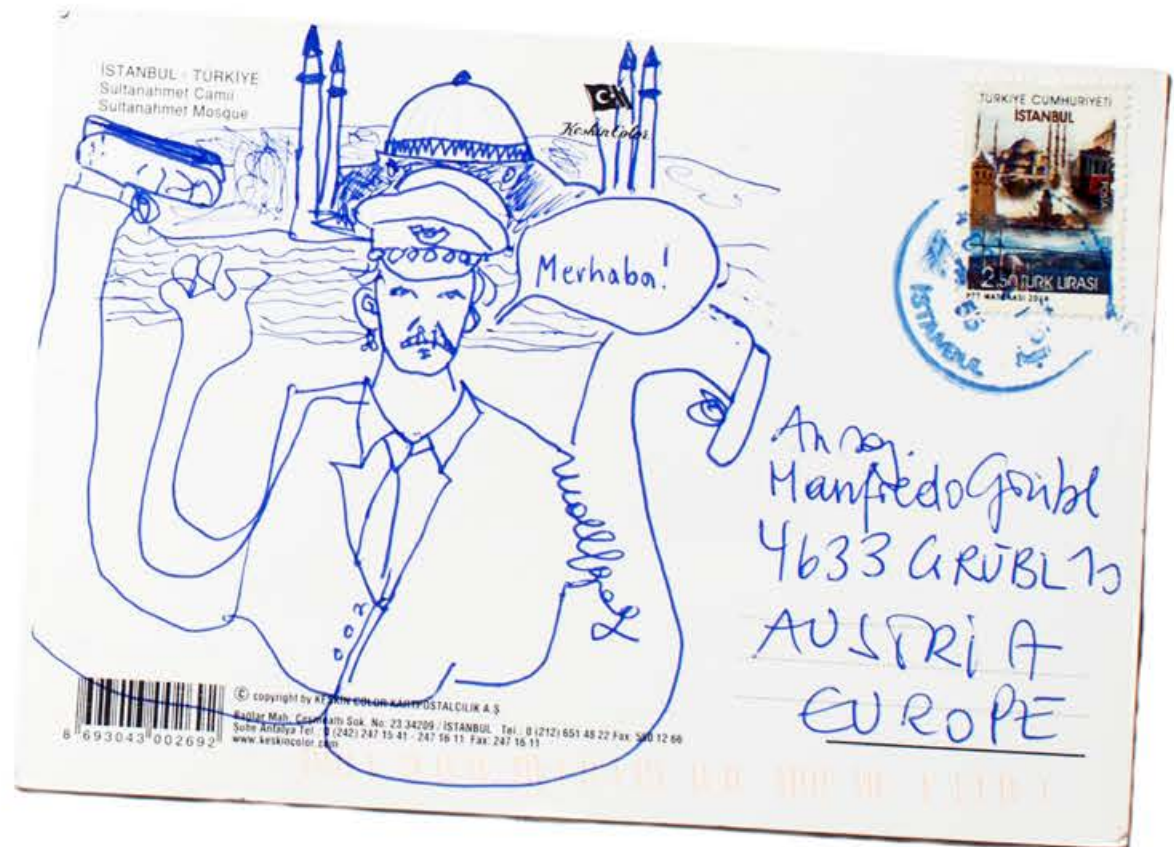 İSTANBUL - TÜRKİYE
Sultanahmet Camii
Sultanahmet Mosque
KeskinColor
TÜRKİYE CUMHURİYETİ
İSTANBUL
2.50 TÜRK LIRASI
İSTANBUL
Merhaba!
Manfredo Grübl
4633 GRÜBL
AUSTRiA
EUROPE
© copyright by KESKİN COLOR KARTPOSTALCILIK A.Ş
Mah. Sok. No: 23 34209 / İSTANBUL Tel.: 0 (212) 651 48 22 Fax: 12 66
Şube Antalya Tel.: 0 (242) 247 15 41 - 247 16 11 Fax: 247 16 11
www.keskincolor.com
8 693043 002692